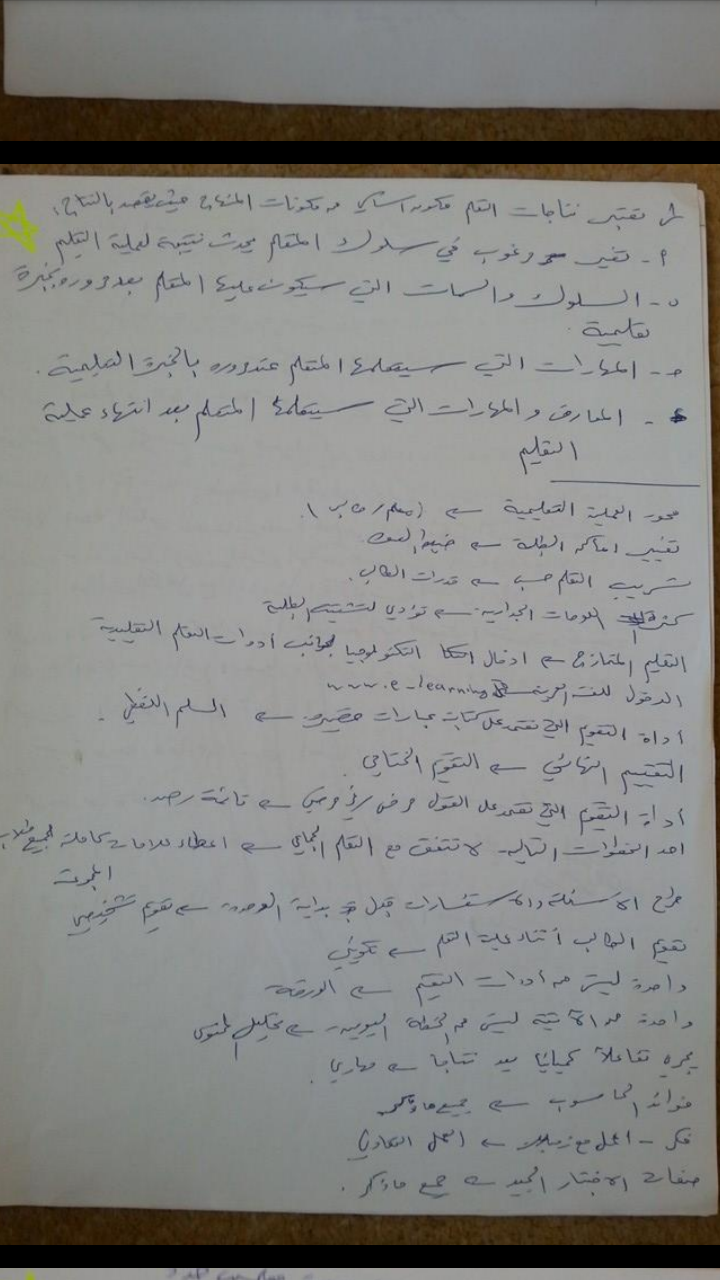 تعتبر نتاجات التعلم مكون اساسي من مكونات المنهاج حيث يقصد بالنتاج :
أ - تغير مرغوب في سلوك المتعلم يحدث نتيجة لعملية التعليم
ب - السلوك والسمات التي سيكون عليها المتعلم بعد مروره بخبرة
تعليمية .
ج - المهارات التي سيتعلمها المتعلم عند مروره بالخبرة التعليمية .
د - المعارف والمهارات التي سيتعلمها المتعلم بعد انتهاء عملية
التعليم
محور العملية التعليمية ← (معلم / طالب )
تغيير اماكن الطلبة ← ضبط الصف
تسريب التعلم حسب ← قدرات الطالب .
كثرة اللوحات الجدارية ← تؤدي لتشتيت الطلبة
التعليم المتمازج ← ادخال التكنولوجيا بجانب أدوات التعلم التقليدية
الدخول للغة العربية ← www.e-learning
أداة التقويم التي تعتمد على كتابة عبارات قصيرة ← السلم اللفظي .
التقييم النهائي ← التقويم الختامي .
أداة التقويم التي تعتمد على القول مرضي / غير مرضي ← قائمة رصد .
احد الخطوات التالية لا تتفق مع التعلم الجماعي ← اعطاء علامات كاملة لجميع طلاب
المجموعة
طرح الاسئلة والاستفسارات قبل بداية الوحدة ← تقويم تشخيصي
تقويم الطالب أثناء عملية التعلم ← تكويني
واحدة ليست من أدوات التقييم ← الورقة
واحدة من الآتية ليست من الخطة اليومية ← تحليل المحتوى
يجري تفاعلاً كيميائيا يعد نتاجا ← مهاري .
فوائد الحاسوب ← جميع ما ذكر
فكر - اعمل مع زميلك ← العمل التعاوني
صفات الاختبار الجيد ← جميع ما ذكر .